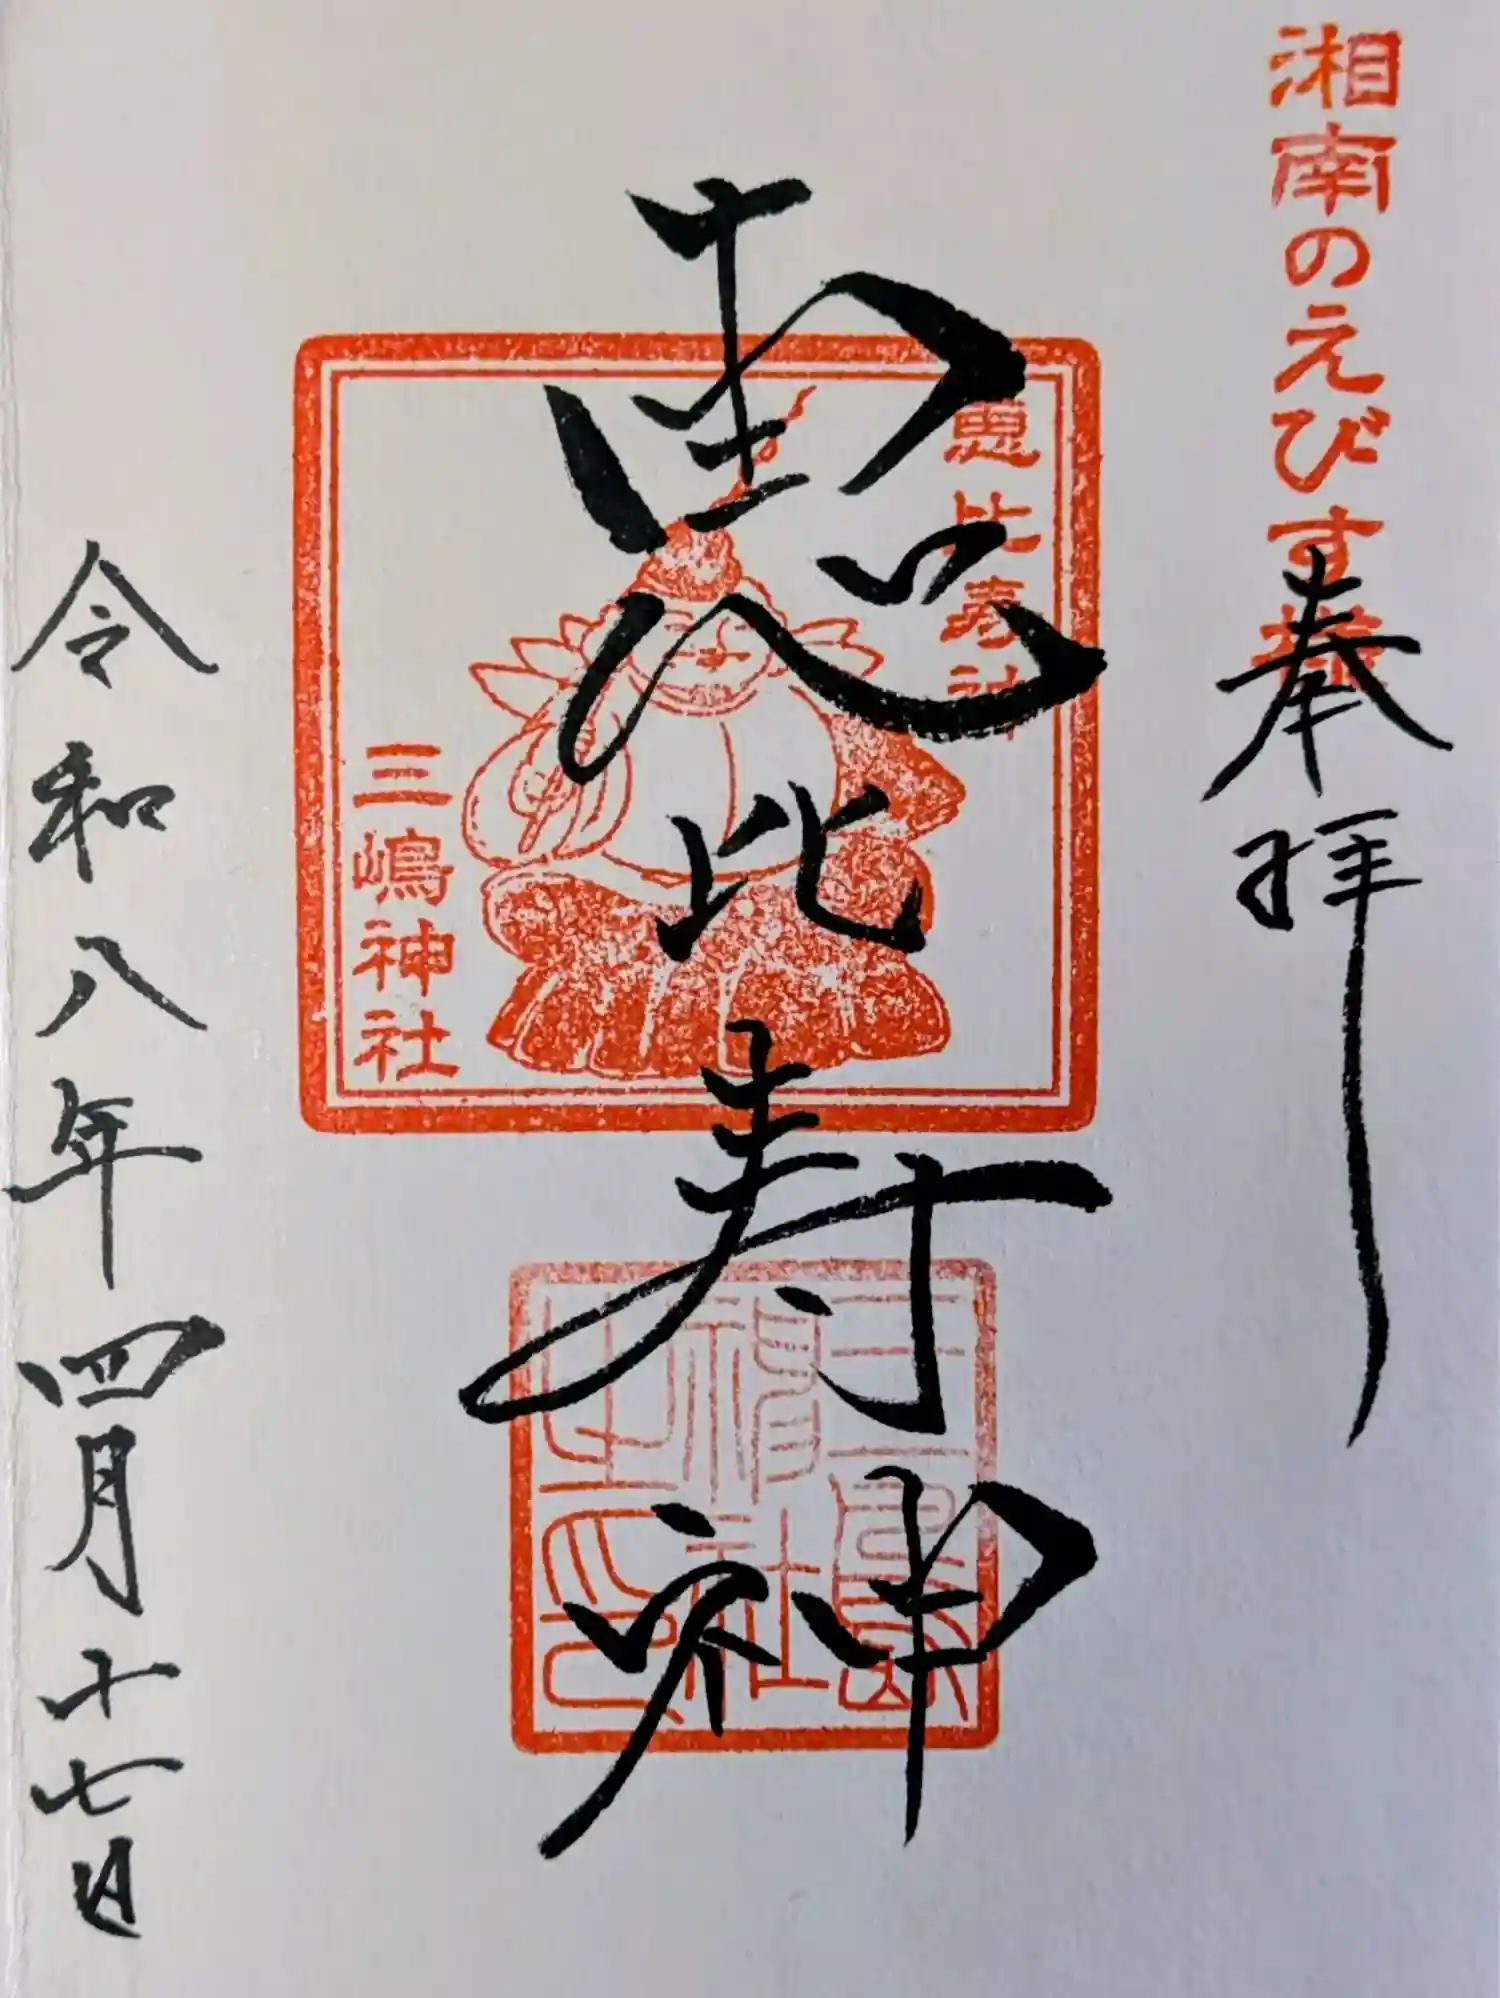 湘南のえびす様
奉拝
恵比寿神
恵比寿神
三嶋神社
三島神社之印
令和八年四月十七日